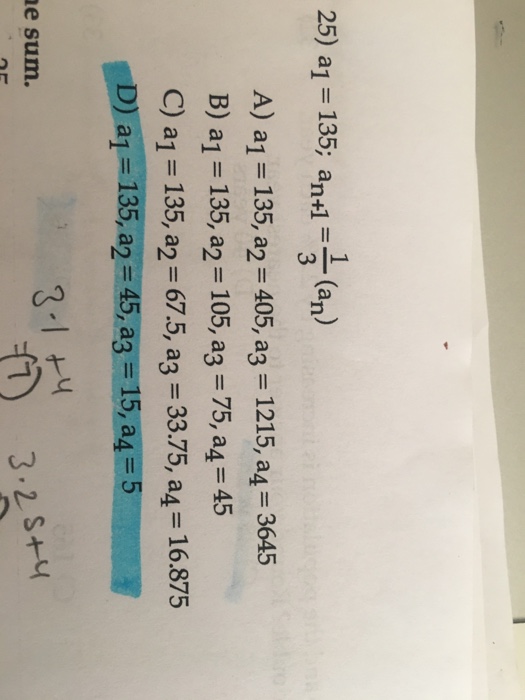 25) a1 = 135; an+1 = 1/3 (an)
A) a1 = 135, a2 = 405, a3 = 1215, a4 = 3645
B) a1 = 135, a2 = 105, a3 = 75, a4 = 45
C) a1 = 135, a2 = 67.5, a3 = 33.75, a4 = 16.875
D) a1 = 135, a2 = 45, a3 = 15, a4 = 5
3·1 +4
=(7)
sum.